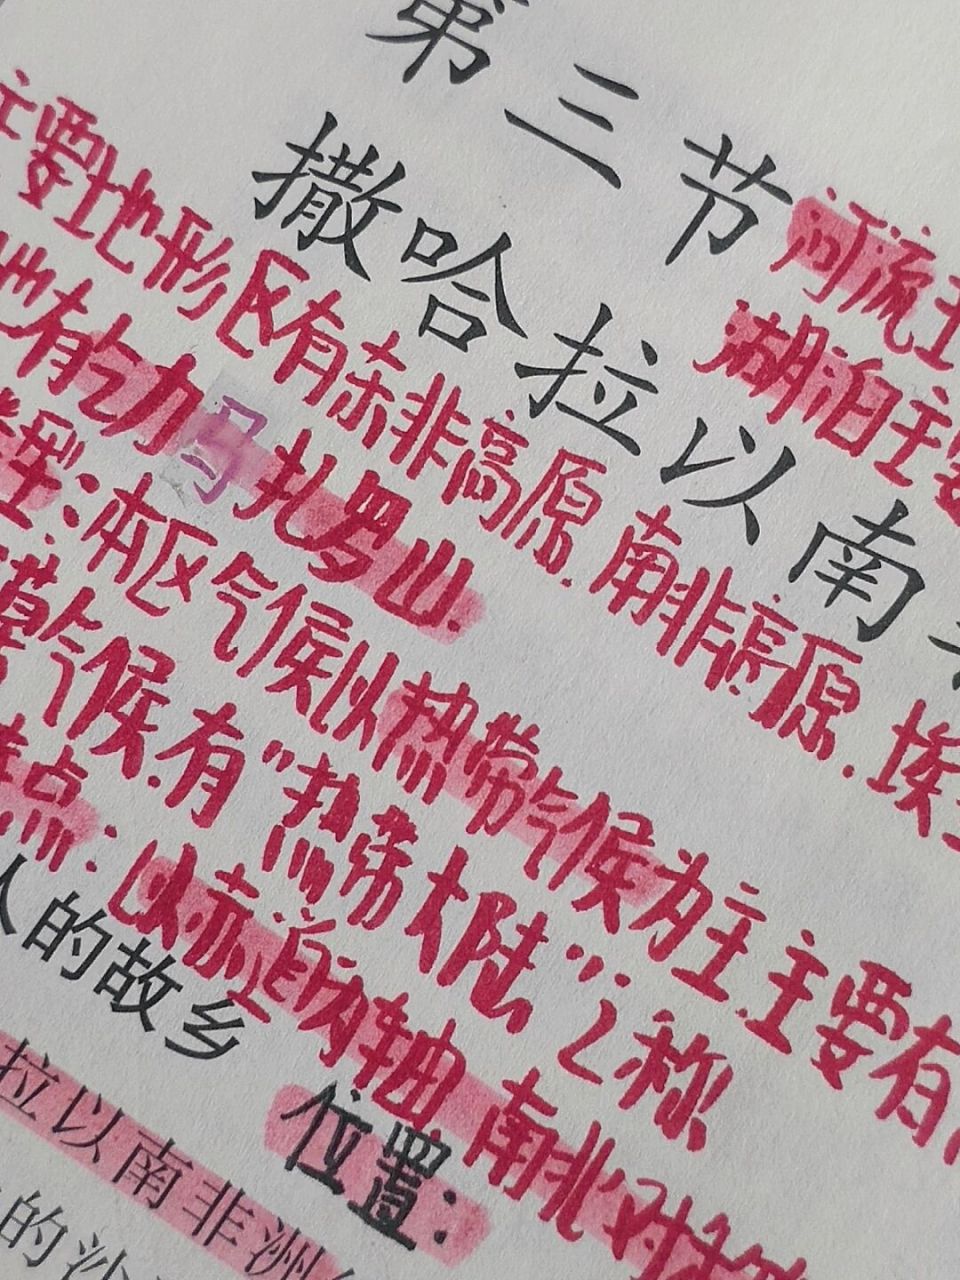 第三节
撒哈拉以南
河流主
湖泊主要
主要地形区有东非高原.南非高原.埃
洲有乞力马扎罗山.
本区气候以热带气候为主.主要有
漠气候.有“热带大陆”之称
特点:以赤道为轴.南北对称
人的故乡
位置:
拉以南非洲
的沙